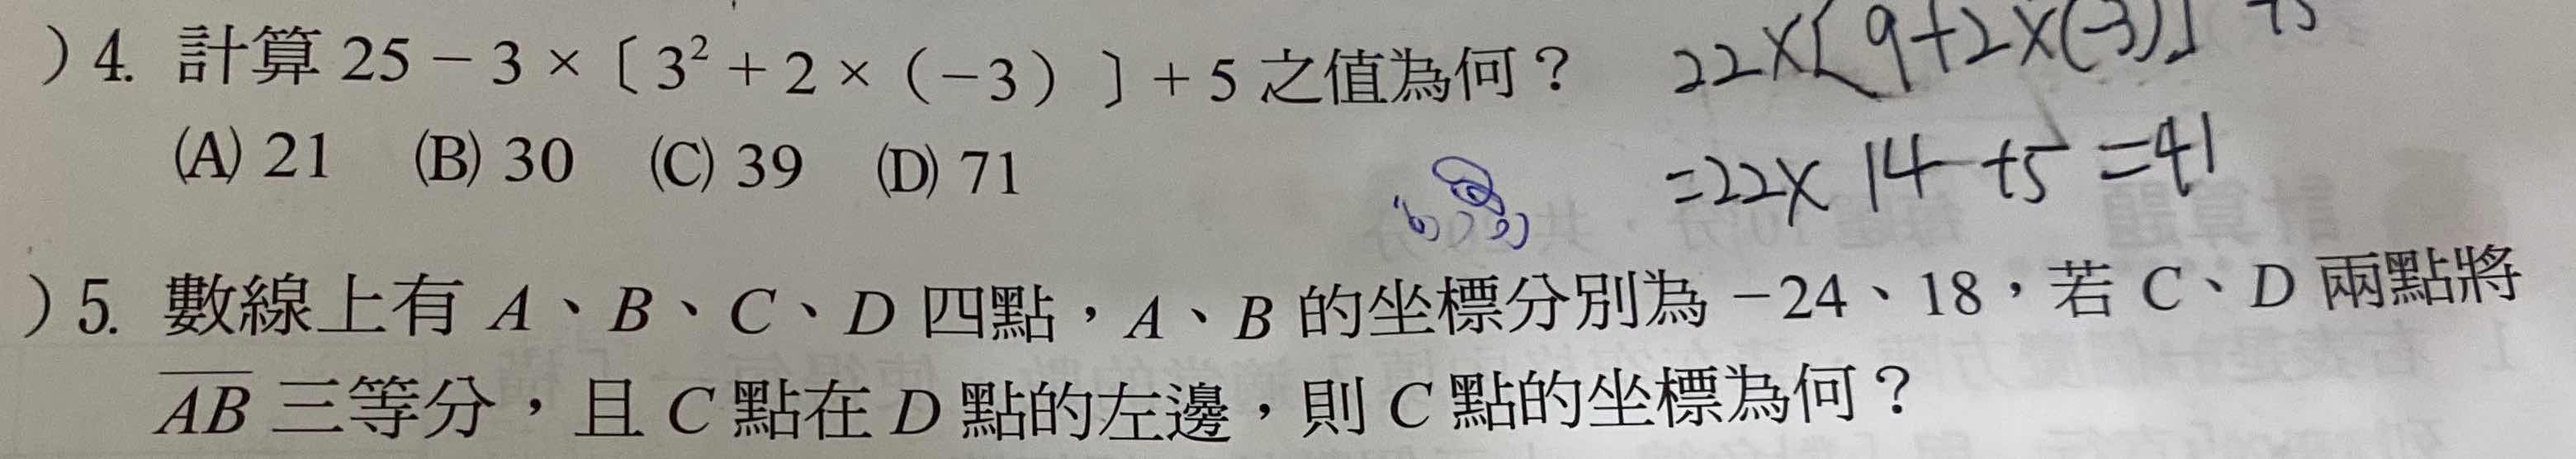 )4. 計算 25－3×〔3²＋2×(－3)〕＋5 之值為何？ 22×[9+2×(-3)] +5
(A) 21 (B) 30 (C) 39 (D) 71 =22× 14 +5 =41
)5. 數線上有 A、B、C、D 四點，A、B 的坐標分別為－24、18，若 C、D 兩點將
AB 三等分，且 C 點在 D 點的左邊，則 C 點的坐標為何？